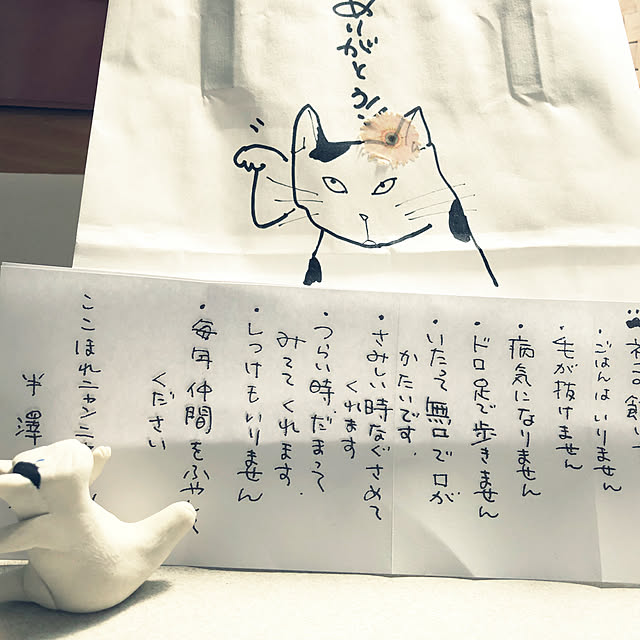 ありがとう!!
・ごはんはいりません
・毛が抜けません
・病気になりません
・ドロ足で歩きません
・いたって無口で口が
かたいです。
・さみしい時なぐさめて
くれます
・つらい時だまって
みててくれます。
・しつけもいりません
・毎年仲間をふやして
ください
ここほれニャンニャン
半澤